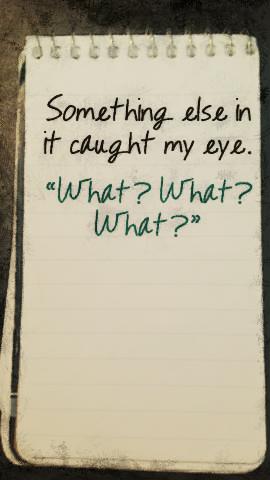 Something else in
it caught my eye.
“What? What?
What?”